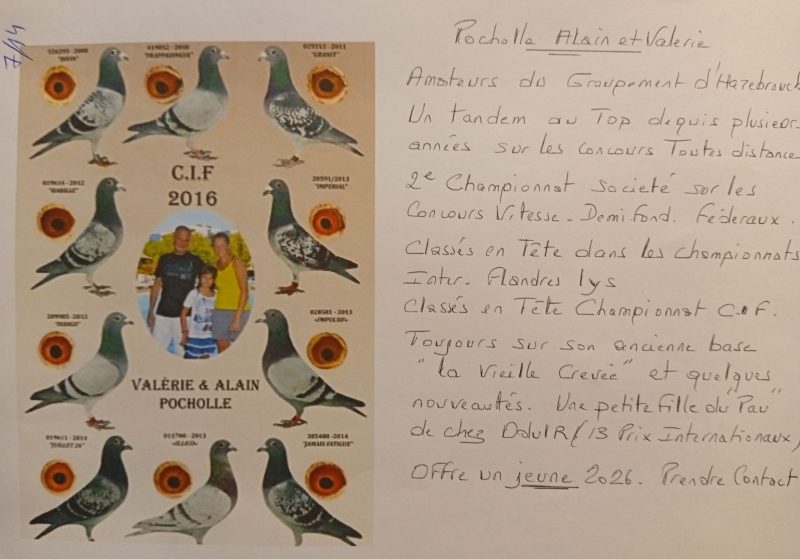 7/14
326295-2008
419052-2010
029315-2011
"GRANIT"
C.I.F
2016
019616-2012
"BABILLE"
20591/2013
"IMPERIAL"
209005-2013
"INDIGO"
020501-2013
VALÉRIE & ALAIN
POCHOLLE
019611-2014
"JUILLET 26"
011700-2013
385488-2014
"JAMAIS FATIGUE"
Pocholle Alain et Valerie
Amateurs du Groupement d'Hazebrouck
Un tandem au Top depuis plusieurs
années sur les concours Toutes distance
2e Championnat societé sur les
Concours Vitesse - Demi fond. Féderaux.
Classés en Tête dans les championnats
Inter. Flandres lys
Classés en Tête Championnat C.I.F.
Toujours sur son ancienne base
"la Vieille Crevée" et quelques
nouveautés. Une petite fille du "Pau"
de chez (13 Prix Internationaux)
Offre un jeune 2026. Prendre Contact